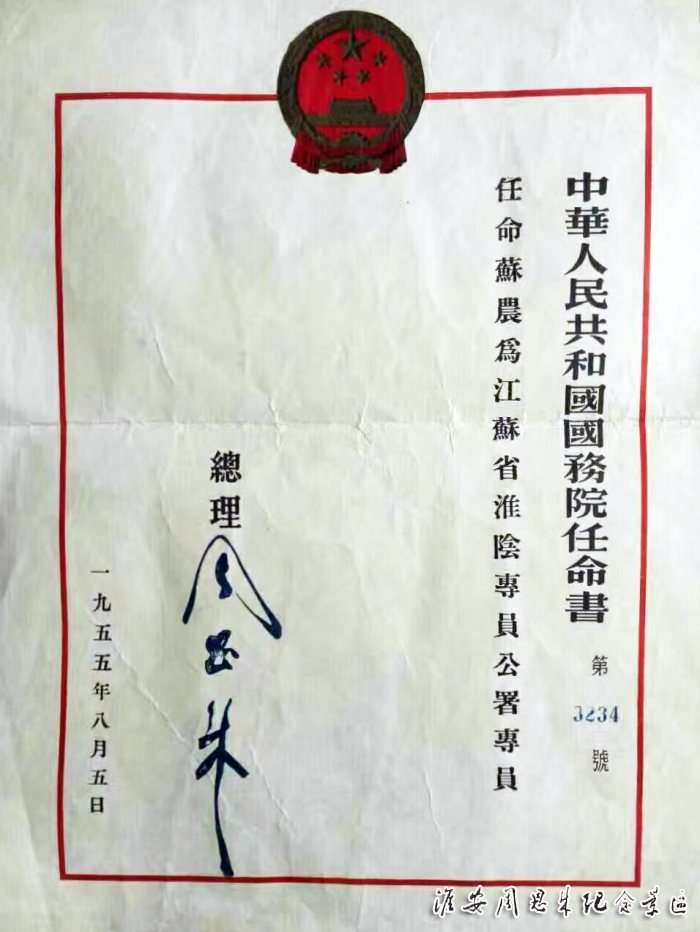 中華人民共和國國務院任命書
第
3234
號
任命蘇農爲江蘇省淮陰專員公署專員
總理
周恩来
一九五五年八月五日
淮安周恩来纪念景区